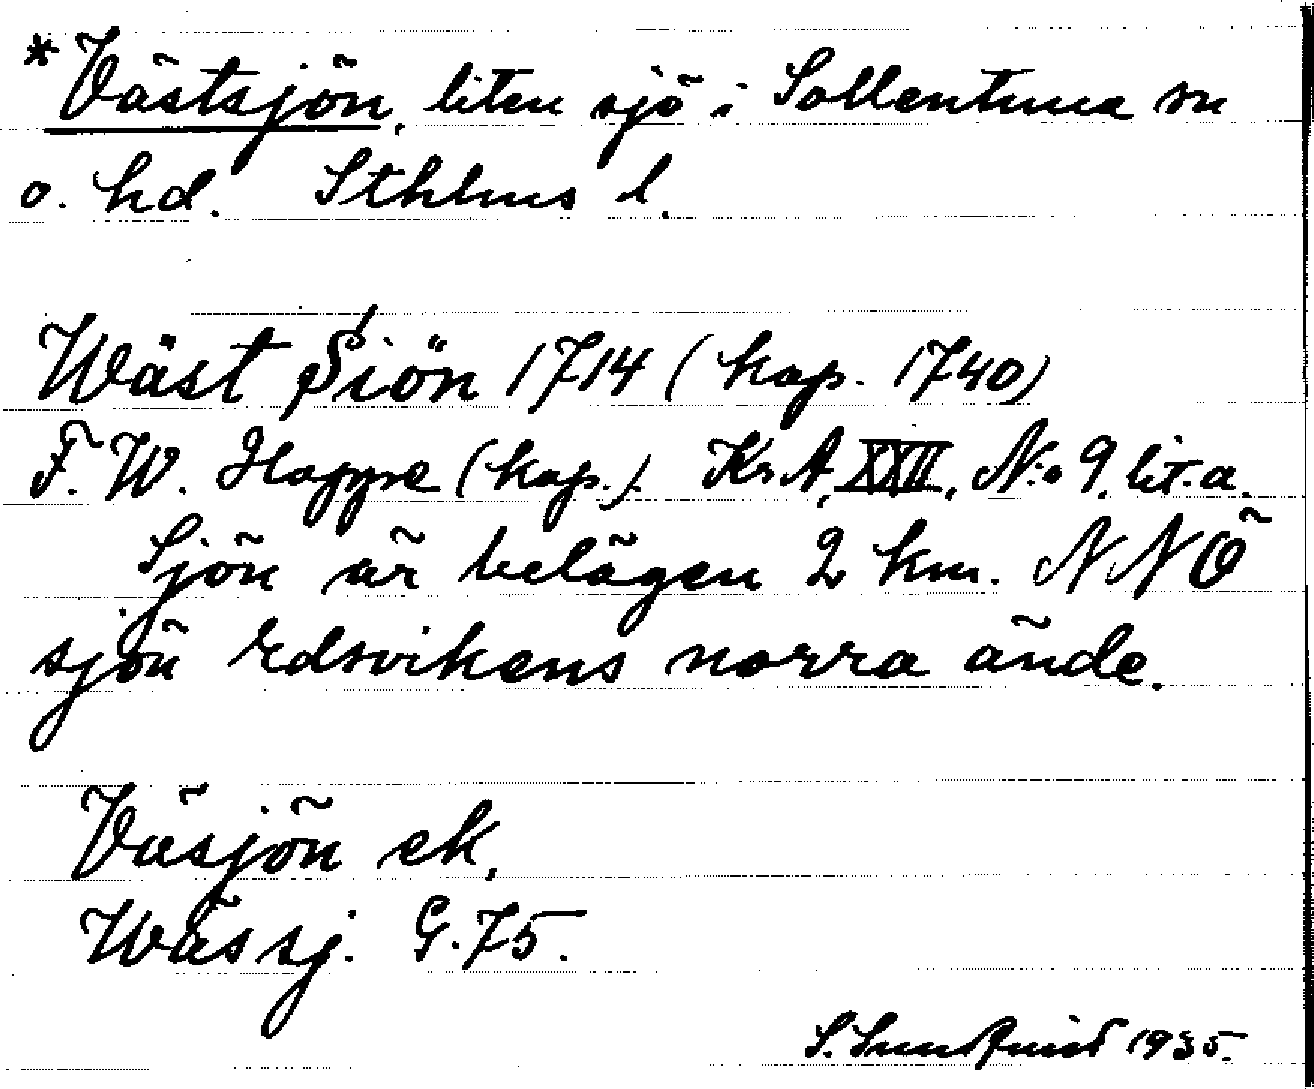 *Västsjön, liten sjö i Sollentuna sn
o. hd. Sthlms l.
Wäst Siön 1714 (kop. 1740)
F. W. Hoppe (kop.). Kr.A. XXII, N:o 9, lit. a.
Sjön är belägen 2 km. NNÖ
sjön Edsvikens norra ände.
Väsjön ek.
Wässj. G. 75.
S. Sundquist 1935.